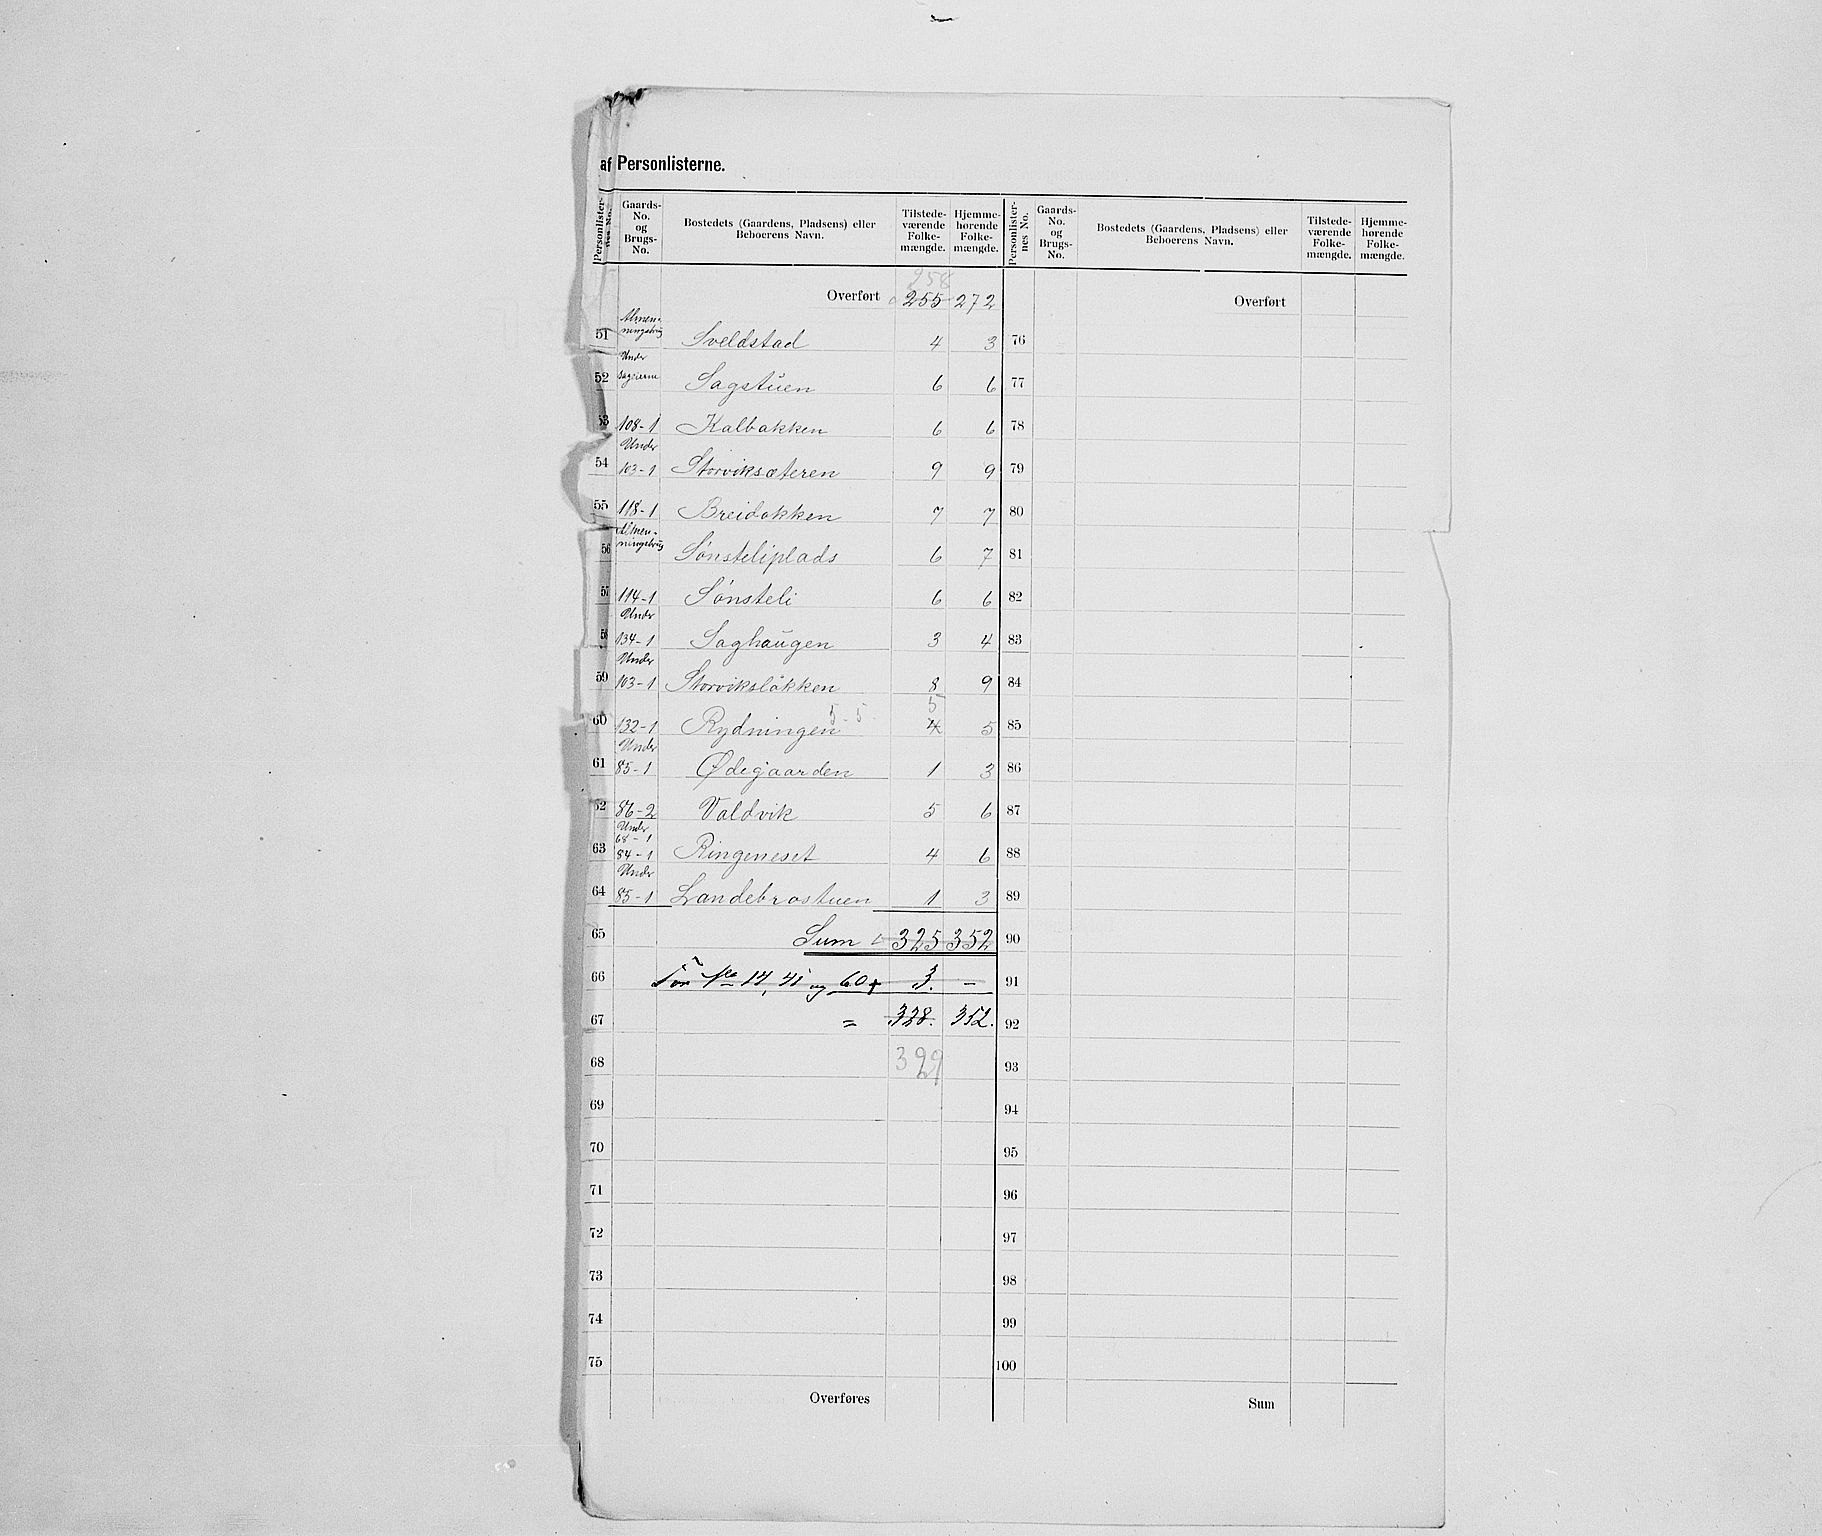 af Personlisterne.
Personlister-nes No. | Gaards-No. og Brugs-No. | Bostedets (Gaardens, Pladsens) eller Beboerens Navn. | Tilstede-værende Folke-mængde. | Hjemme-hørende Folke-mængde. | Personlister-nes No. | Gaards-No. og Brugs-No. | Bostedets (Gaardens, Pladsens) eller Beboerens Navn. | Tilstede-værende Folke-mængde. | Hjemme-hørende Folke-mængde.
258
Overført 255 272 Overført
51 Almen-ningsbrug Sveldstad 4 3 76
52 Under Sageierne Sagstuen 6 6 77
53 108-1 Kalbakken 6 6 78
54 Under 103-1 Storviksæteren 9 9 79
55 118-1 Breidakken 7 7 80
56 Almen-ningsbrug Sønsteliplads 6 7 81
57 114-1 Sønsteli 6 6 82
58 Under 134-1 Saghaugen 3 4 83
59 Under 103-1 Storviksløkken 8 9 84
60 132-1 Rydningen 5-5 4 5 5 85
61 Under 85-1 Ødegaarden 1 3 86
62 86-2 Valdvik 5 6 87
63 Under 68-1 84-1 Ringeneset 4 6 88
64 Under 85-1 Landebrostuen 1 3 89
65 Sum 325 352 90
66 For No 14, 41 og 60 + 3. - 91
67 = 328. 352. 92
68 329 93
69 94
70 95
71 96
72 97
73 98
74 99
75 100
Overføres Sum